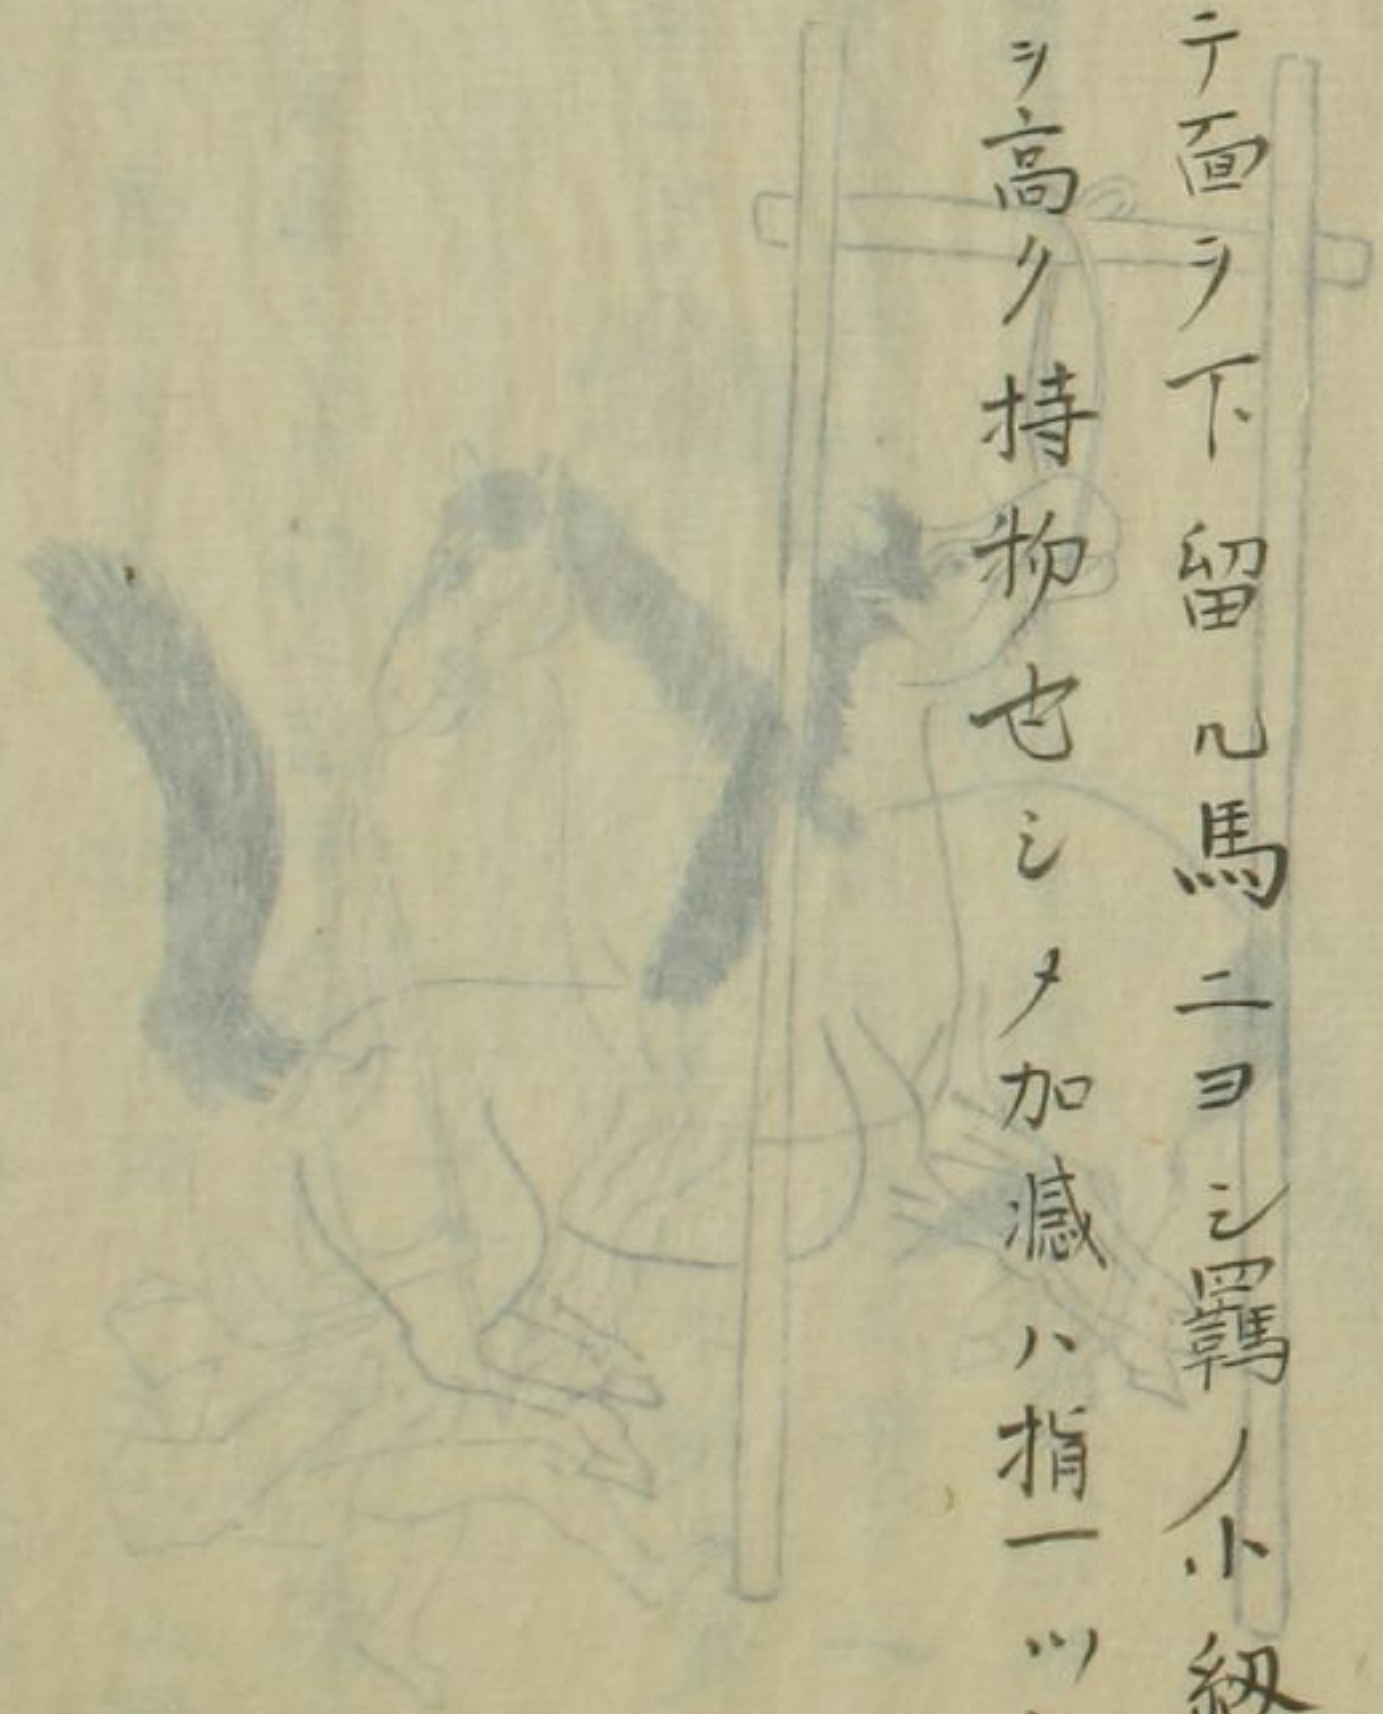 テ面ヲ下留ル馬ニヨシ羈ノ小紐
ヲ高ク持物也シメ加減ハ指一ツ